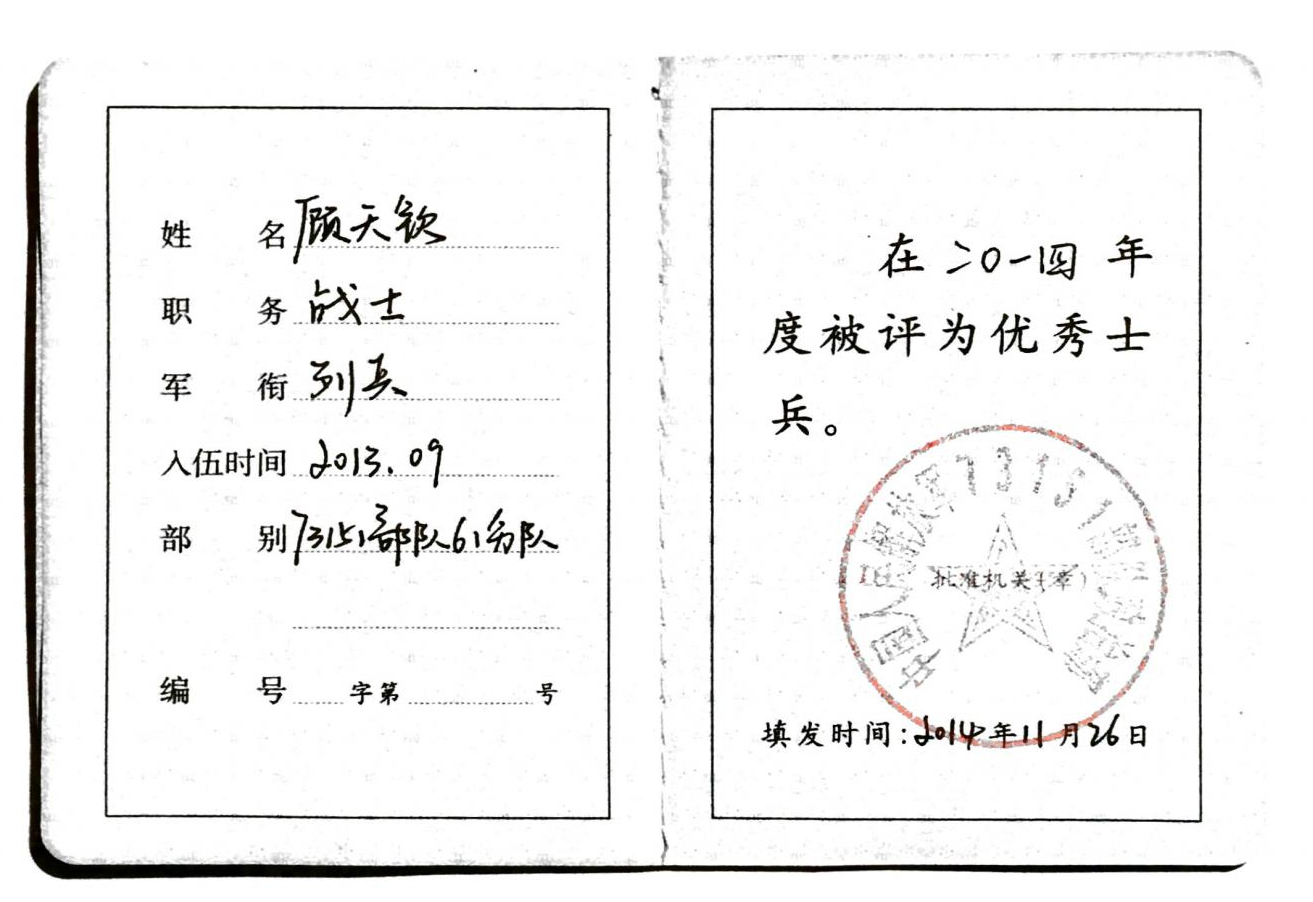 姓 名 顾天钦
职 务 战士
军 衔 列兵
入伍时间 2013.09
部 别 73151部队61分队
编 号 字第 号
在二〇一四年
度被评为优秀士
兵。
中国人民解放军73151部队政治处
批准机关(章)
填发时间:2014年11月26日